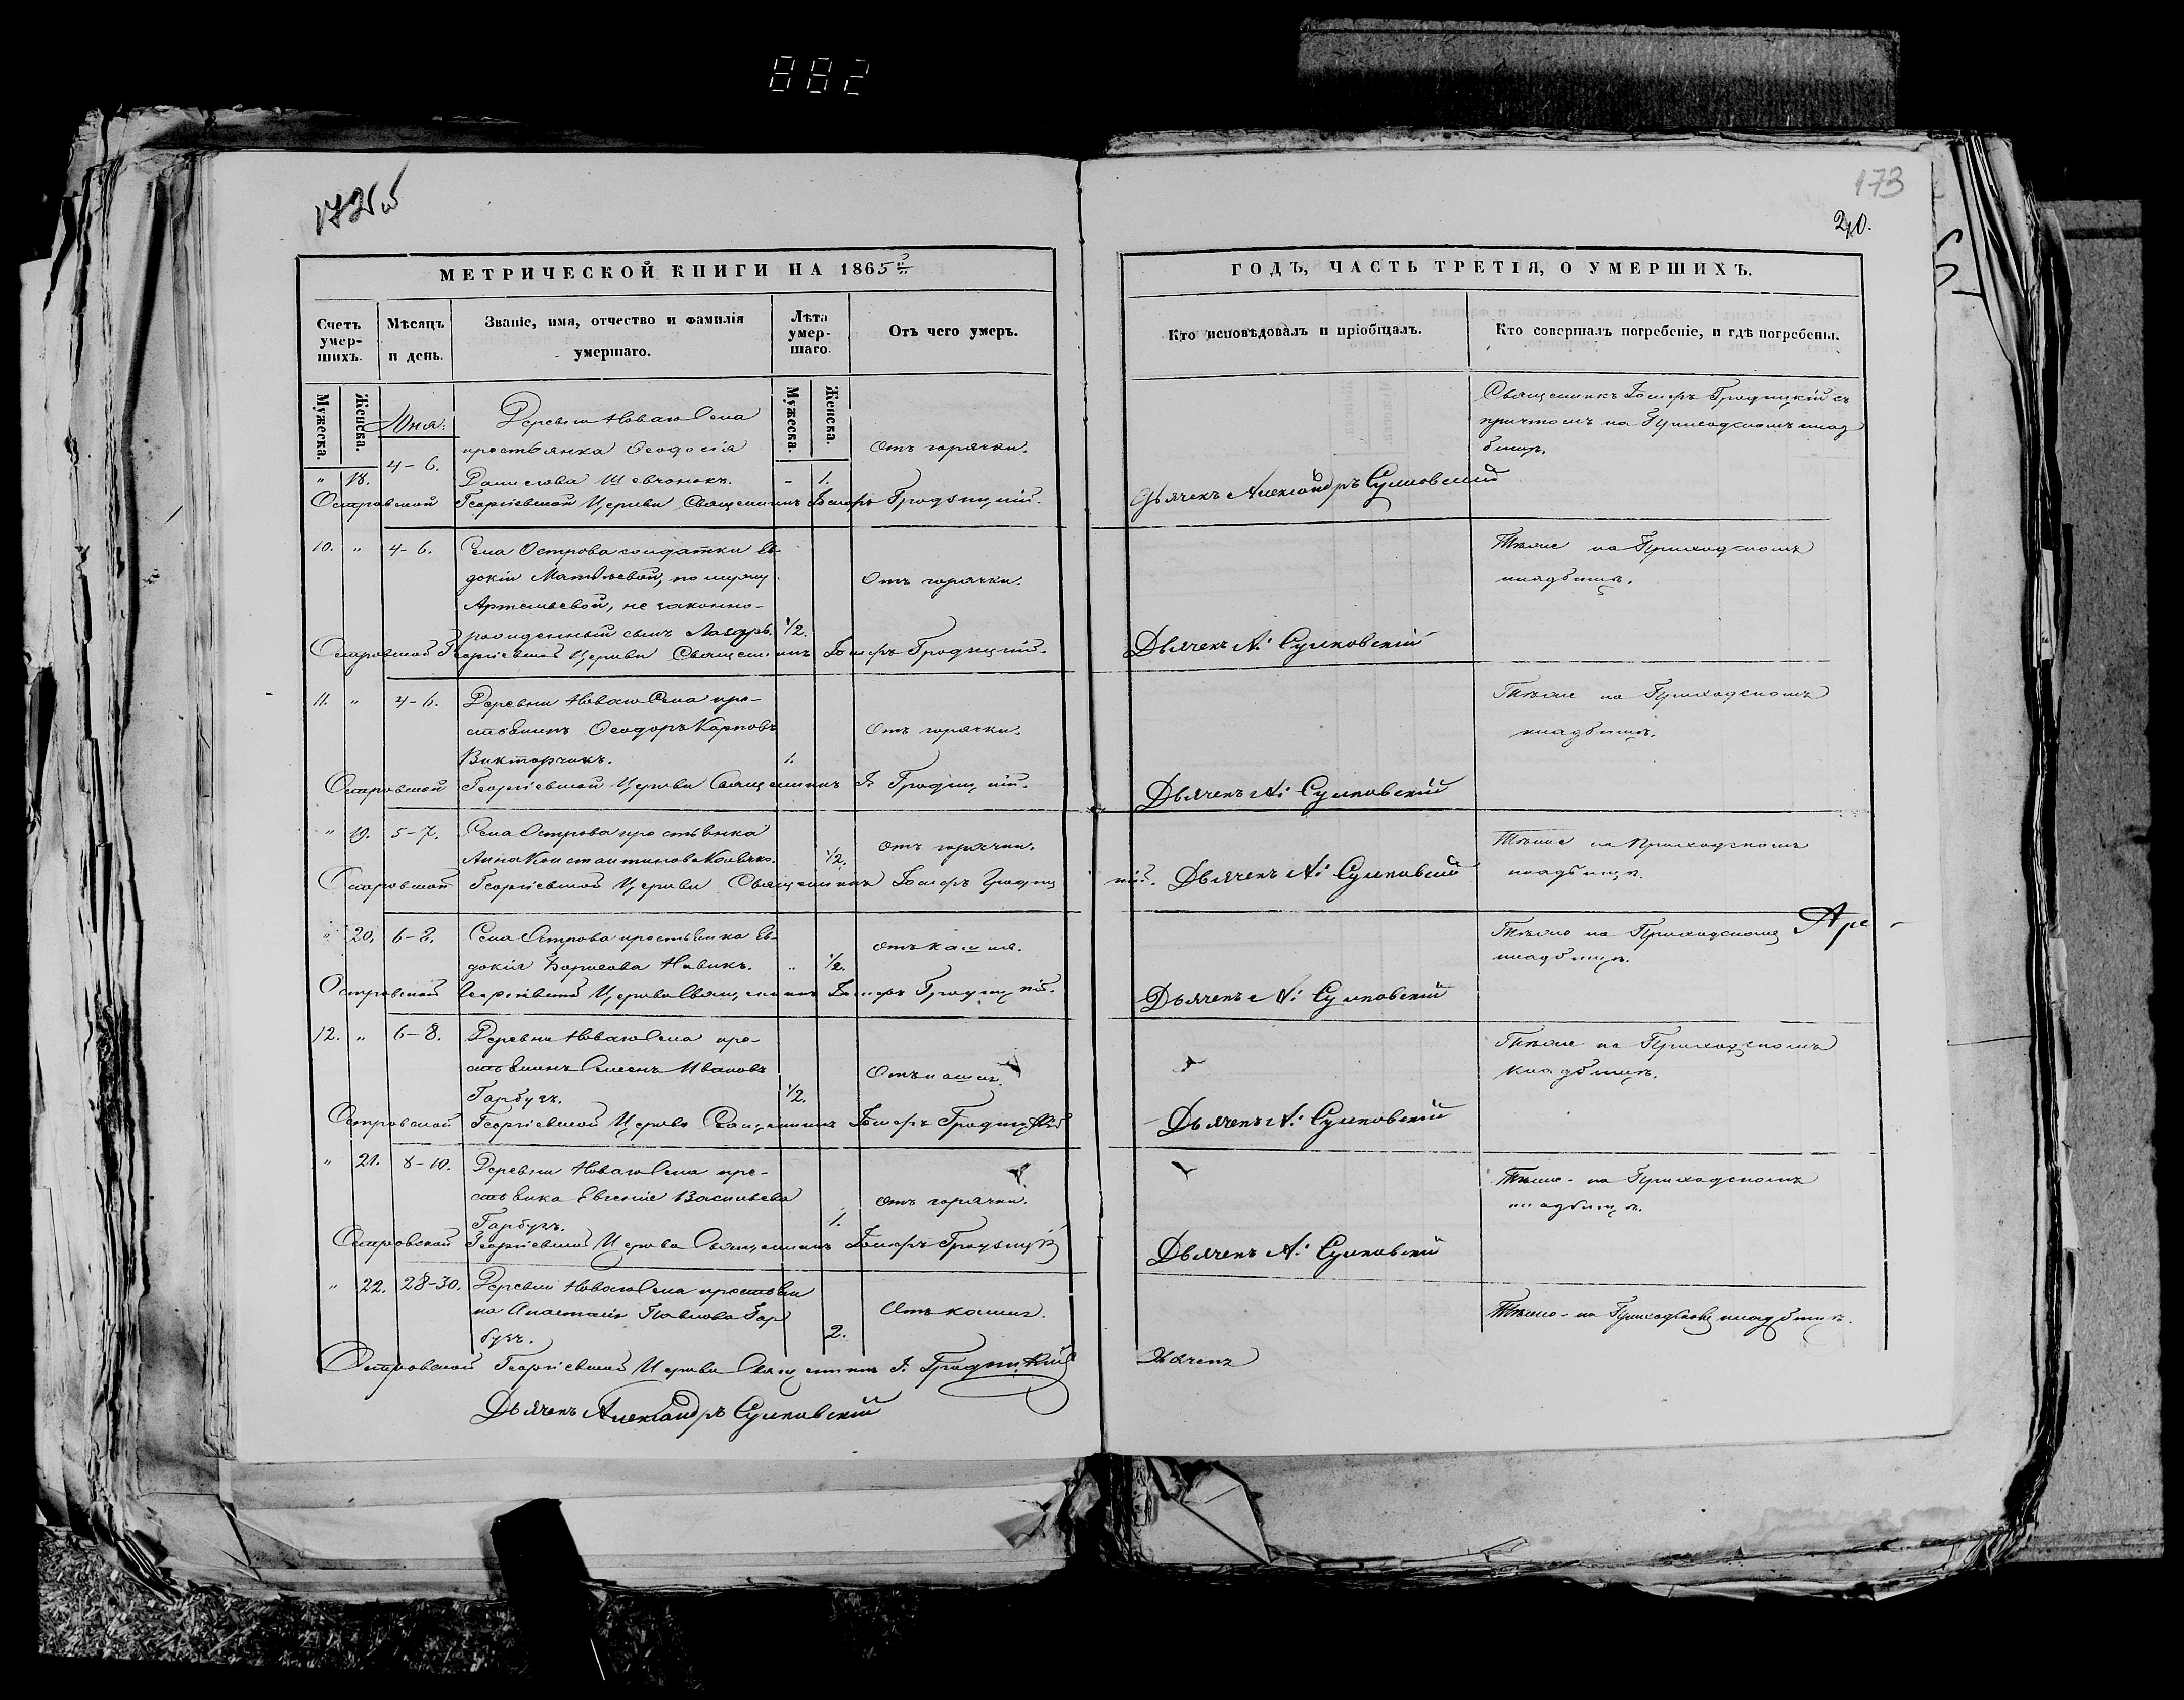 882
173
240.
МЕТРИЧЕСКОЙ КНИГИ НА 1865й
ГОДЪ, ЧАСТЬ ТРЕТІЯ, О УМЕРШИХЪ.
Счетъ умер-шихъ.
Мѣсяцъ и день.
Званіе, имя, отчество и фамилія умершаго.
Лѣта умер-шаго.
Отъ чего умеръ.
Кто исповѣдовалъ и пріобщалъ.
Кто совершалъ погребеніе, и гдѣ погребены.
Мужеска.
Женска.
Мужеска.
Женска.
Деревни Новаго Села
крестьянка Ѳеодосія
4-6.
" 18. Данилова Шевчонокъ. - 1.
Отъ горячки.
Священникъ Гродицкій съ
причтомъ на Приходскомъ клад
бищѣ.
Островской Георгіевской Церкви Священникъ Гродзицкій.
Дьячекъ Александръ Сулковскій
10. " 4-6. Села Острова солдатки Ев-
докіи Матѵѣевой, по мужу
Артемьевой, не законно-
рожденный сынъ Лавръ. 1/2.
Отъ горячки.
Тѣже на Приходскомъ
кладбищѣ.
Островской Георгіевской Церкви Священникъ Гродицкій.
Дьячекъ А: Сулковскій
11. " 4-6. Деревни Новаго Села кре-
стьянинъ Ѳеодоръ Карповъ
Викторчикъ. 1.
Отъ горячки.
Тѣже на Приходскомъ
кладбищѣ.
Островской Георгіевской Церкви Священникъ Гродицкій.
Дьячекъ А: Сулковскій
" 19. 5-7. Села Острова крестьянка
Анна Константинова 1/2.
отъ горячки.
Тѣже на Приходскомъ
кладбищѣ.
Островской Георгіевской Церкви Священникъ Гродиц
кій. Дьячекъ А: Сулковскій
" 20. 6-8. Села Острова крестьянка Ев-
докія Борисова Новикъ. " 1/2.
отъ кашля.
Тѣже на Приходскомъ
кладбищѣ.
Островской Георгіевской Церкви Священникъ Гродицкій.
Дьячекъ А: Сулковскій
12. " 6-8. Деревни Новаго Села кре-
стьянинъ Семенъ Ивановъ
Гарбузъ. 1/2.
Отъ кашля.
Тѣже на Приходскомъ
кладбищѣ.
Островской Георгіевской Церкви Священникъ Гродицкій
Дьячекъ А: Сулковскій
" 21. 8-10. Деревни Новаго Села кре-
стьянка Евгенія Васильева
Гарбузъ. 1.
отъ горячки.
Тѣже на Приходскомъ
кладбищѣ.
Островской Георгіевской Церкви Священникъ Гродзицкій
Дьячекъ А: Сулковскій
" 22. 28-30. Деревни Новаго Села крестьян
ка Анастасія Павлова Гар
бузъ. 2.
Отъ кашля.
Тѣже на Приходскомъ кладбищѣ.
Островской Георгіевской Церкви Священникъ Гродицкій
Дьячекъ
Дьячекъ Александръ Сулковскій